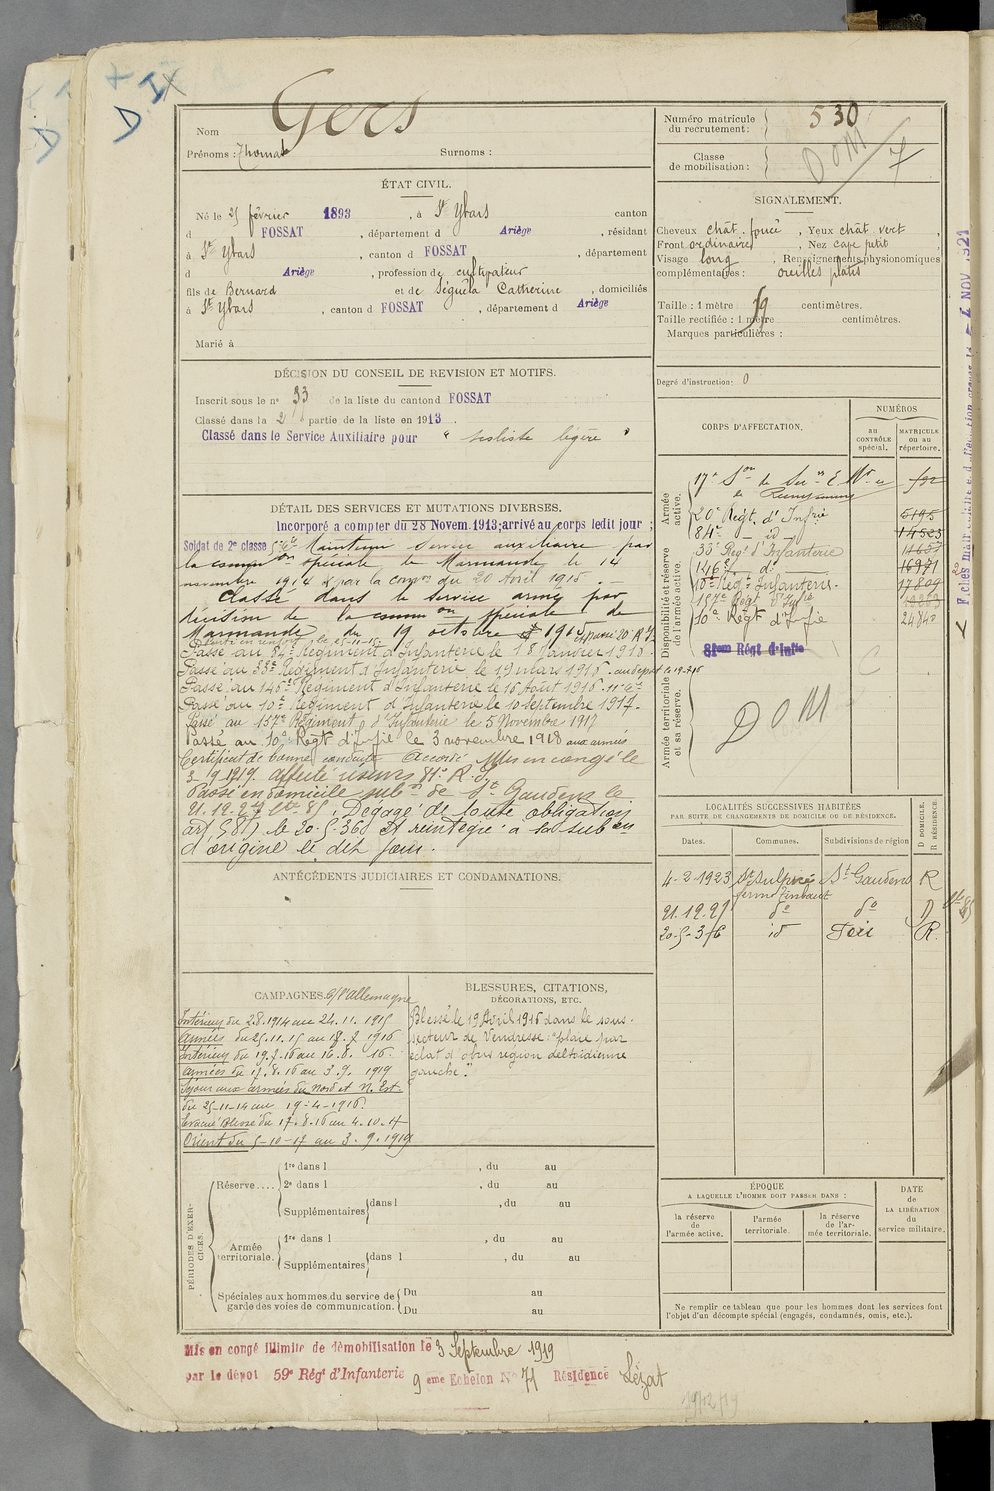 D IX
D
Nom Gers
Prénoms : Thomas Surnoms :
ÉTAT CIVIL.
Né le 25 février 1893, à St Ybars canton
d FOSSAT, département d Ariège, résidant
à St Ybars, canton d FOSSAT, département
d Ariège, profession de cultivateur
fils de Bernard et de Séguéla Catherine, domiciliés
à St Ybars, canton d FOSSAT, département d Ariège
Marié à
DÉCISION DU CONSEIL DE REVISION ET MOTIFS.
Inscrit sous le n° 33 de la liste du canton d FOSSAT
Classé dans la 2 partie de la liste en 1913.
Classé dans le Service Auxiliaire pour "
légère "
DÉTAIL DES SERVICES ET MUTATIONS DIVERSES.
Incorporé a compter du 28 Novem. 1913; arrivé au corps ledit jour ;
Soldat de 2e classe Maintenu service auxiliaire par
la common spéciale de Marmande le 14
novembre 1914 & par la comon du 20 Avril 1915. —
Classé dans le service armé par
décision de la common spéciale de
Marmande du 19 octobre 1915
Passé au 84e Régiment d'Infanterie le 18 Janvier 1916.
Passé au 33e Régiment d'Infanterie le 19 mars 1916.
Passé au 146e Régiment d'Infanterie le 16 Août 1916.
Passé au 10e Régiment d'Infanterie le 10 Septembre 1917.
Passé au 157e Régiment d'Infanterie le 5 Novembre 1917
Passé au 10e Régt d'Infie le 3 novembre 1918 aux armées
Certificat de bonne conduite Accordé Mis en congé le
3.9.1919. affecté réserves 81e R.I.
Passé en domicile subon de St Gaudens le
21.12.27. Dégagé de toute obligation
art 58) le 20-5-36 et réintégré à la subon
d'origine le dit jour.
ANTÉCÉDENTS JUDICIAIRES ET CONDAMNATIONS.
CAMPAGNES. C/ l'Allemagne
Intérieur du 2.8.1914 au 24.11.1915
Armées du 25.11.15 au 18.7.1916
Intérieur du 19.7.16 au 16.8.16.
Armées du 17.8.16 au 3.9.1919
Séjour aux armées du Nord et N. Est.
du 25-11-14 au 19-4-1916.
Evacué Blessé du 17.8.16 au 4.10.17
Orient du 5-10-17 au 3.9.1919
BLESSURES, CITATIONS,
DÉCORATIONS, ETC.
Blessé le 19 Avril 1916 dans le sous-
secteur de Vendresse : "plaie par
éclat d'obus région deltoïdienne
gauche".
PÉRIODES D'EXERCICES.
Réserve.... 1re dans l , du au
2e dans l , du au
Supplémentaires dans l , du au
Armée territoriale. 1re dans l , du au
Supplémentaires dans l , du au
Spéciales aux hommes du service de garde des voies de communication. Du au
Du au
Mis en congé illimité de démobilisation le 3 Septembre 1919
par le dépot 59e Régt d'Infanterie 9 eme Echelon N° 71 Résidence Lézat
19/12/19
Numéro matricule du recrutement : 530
Classe de mobilisation : 7
DOM
SIGNALEMENT.
Cheveux chât. foncé, Yeux chât vert,
Front ordinaire, Nez cave petit
Visage long, Renseignements physionomiques
complémentaires : oreilles plates
Taille : 1 mètre 59 centimètres.
Taille rectifiée : 1 mètre centimètres.
Marques particulières :
Degré d'instruction : 0
CORPS D'AFFECTATION.
NUMÉROS
au CONTRÔLE spécial.
MATRICULE ou au répertoire.
Armée active.
Disponibilité et réserve de l'armée active.
Armée territoriale et sa réserve.
17e Son de
20e Régt d'Infie 5195
84e — id — 14523
33e Régt d'Infanterie 11657
146e — d° — 16971
10e Régt Infanterie. 17809
157e Régt d'Infie
10e Régt d'Infie 24840
81eme Régt d'Infie
DOM
C
LOCALITÉS SUCCESSIVES HABITÉES
PAR SUITE DE CHANGEMENTS DE DOMICILE OU DE RÉSIDENCE.
Dates. Communes. Subdivisions de région D DOMICILE. R RÉSIDENCE.
4-2-1923 St Sulpice St Gaudens R
21.12.27 d° d° D
20-5-36 id Foix R.
ÉPOQUE
A LAQUELLE L'HOMME DOIT PASSER DANS :
la réserve de l'armée active.
l'armée territoriale.
la réserve de l'armée territoriale.
DATE de LA LIBÉRATION du service militaire.
Ne remplir ce tableau que pour les hommes dont les services font
l'objet d'un décompte spécial (engagés, condamnés, omis, etc.).